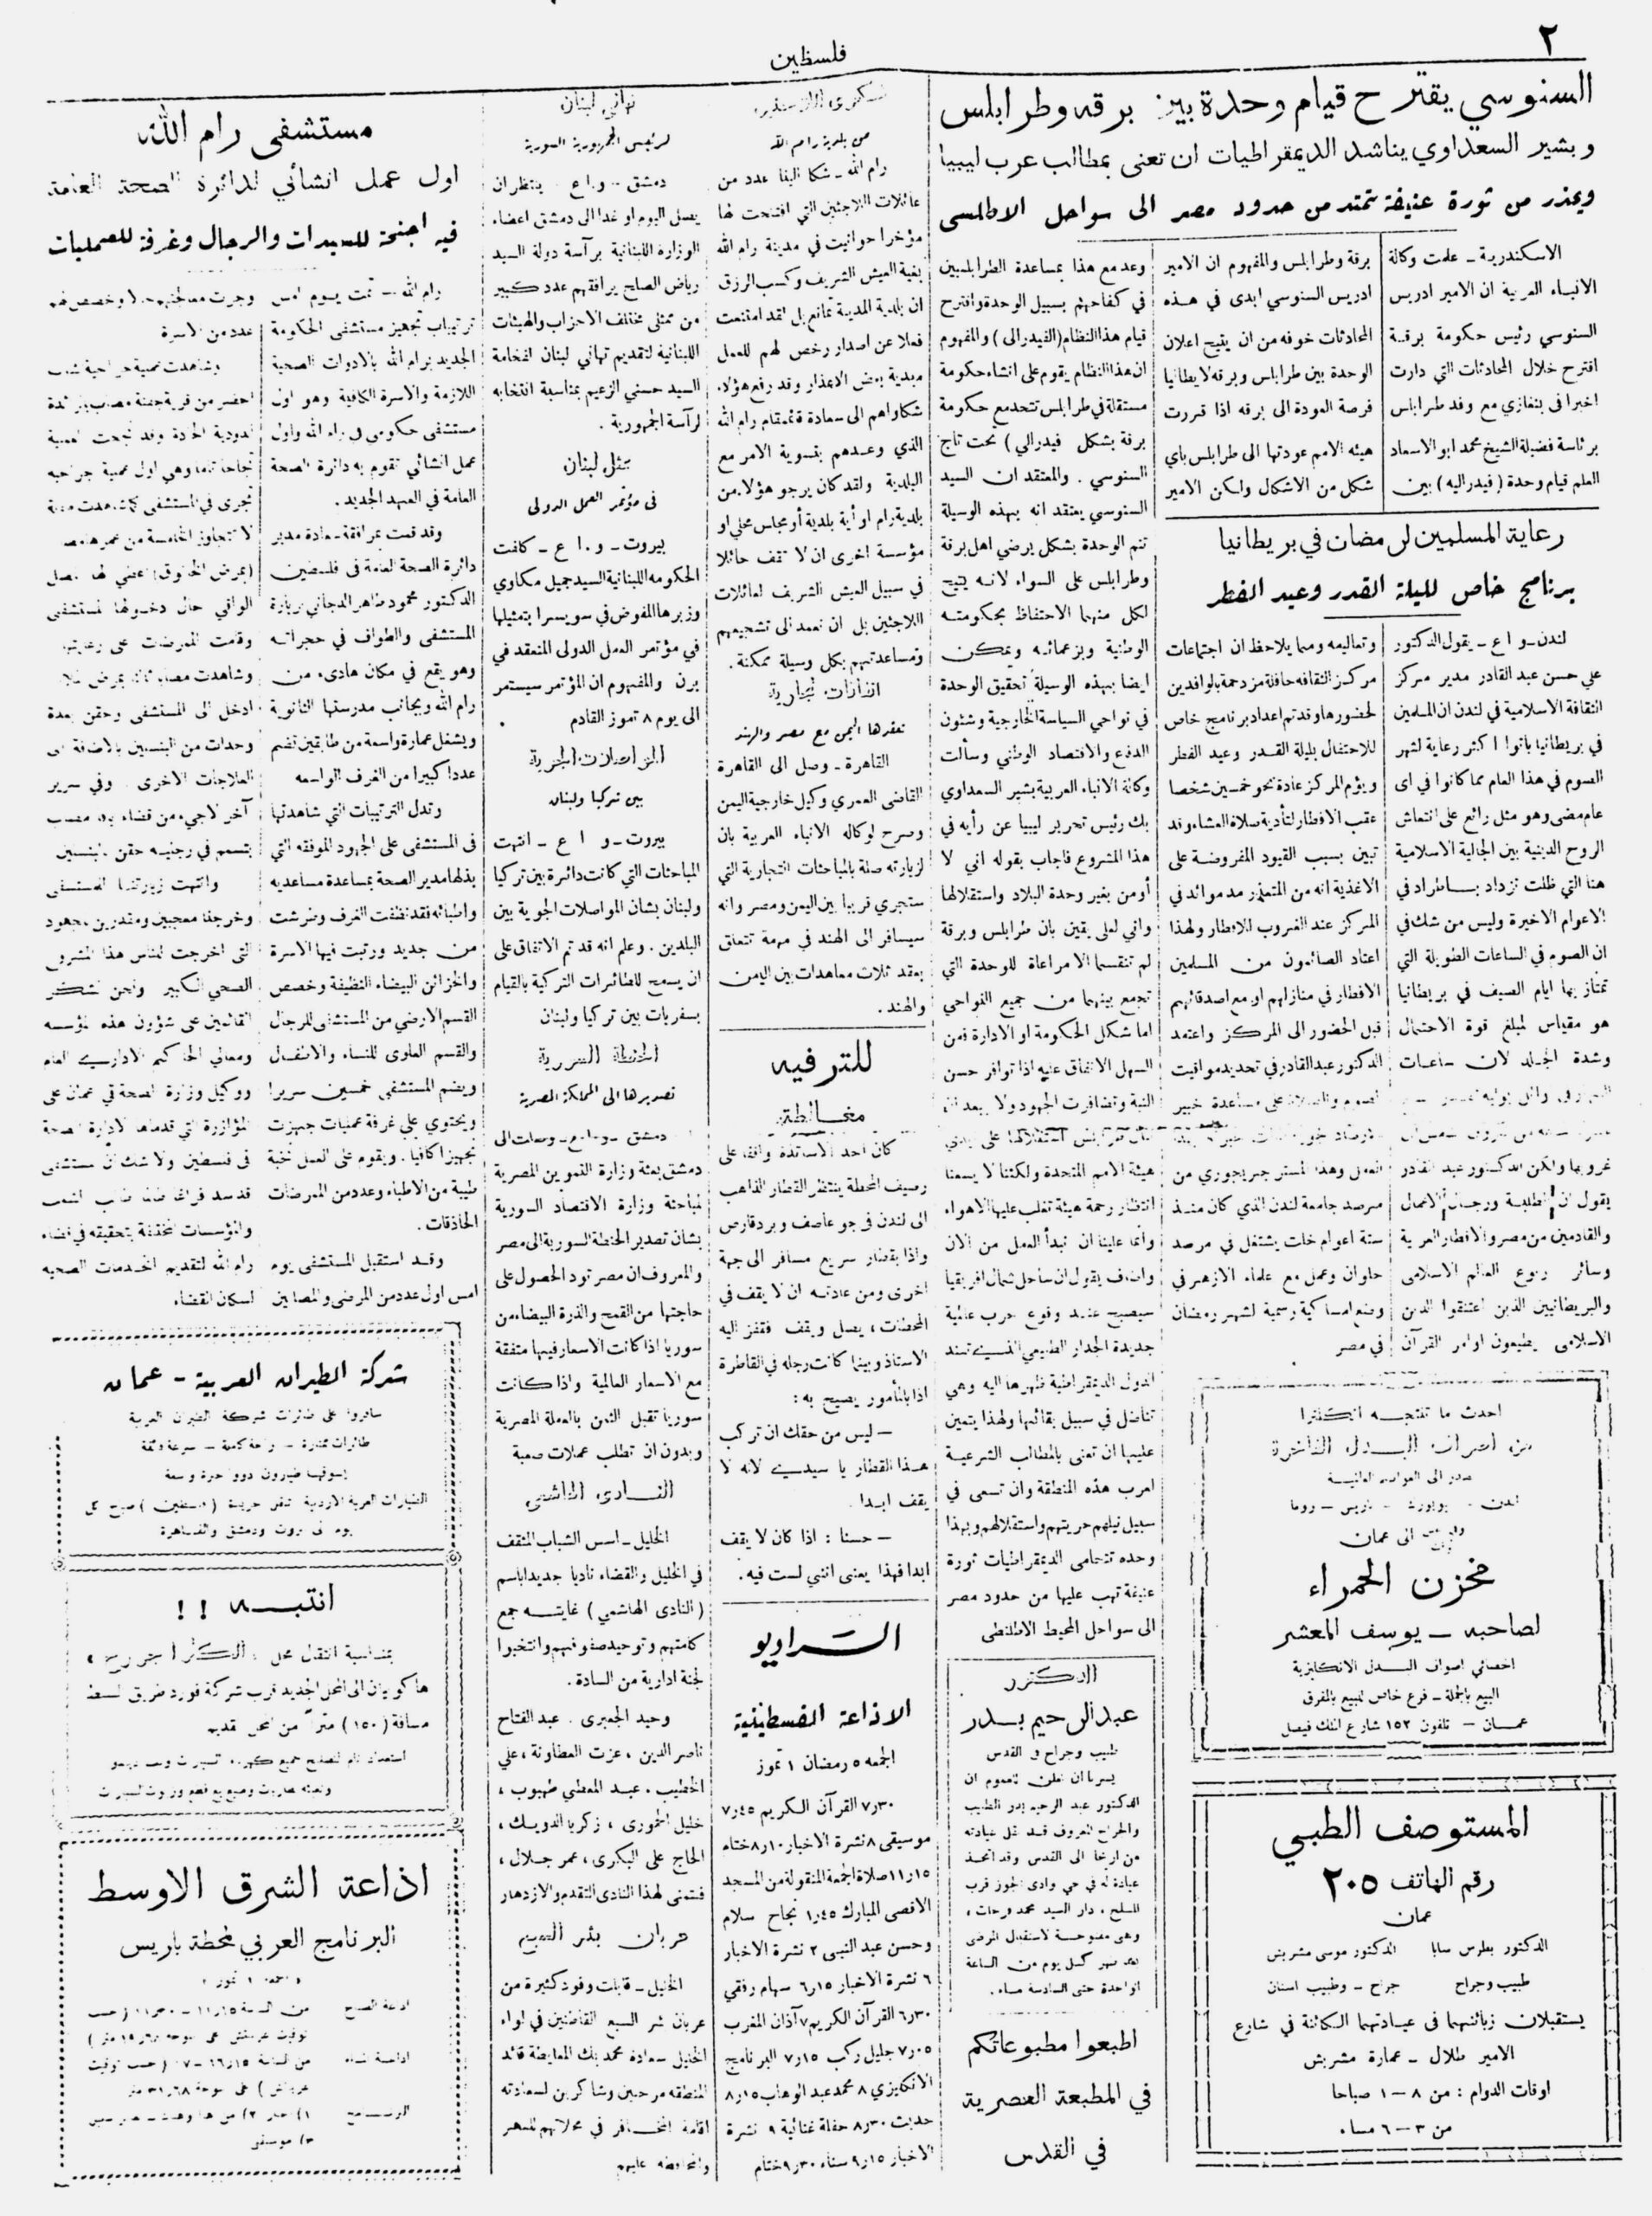 ٢
فلسطين
السنوسي يقترح قيام وحدة بين برقه وطرابلس
وبشير السعداوي يناشد الديمقراطيات ان تعنى بمطالب عرب ليبيا
ويحذر من ثورة عنيفة تمتد من حدود مصر الى سواحل الاطلسى
الاسكندرية ـ علمت وكالة
الانباء العربية ان الامير ادريس
السنوسي رئيس حكومة برقة
اقترح خلال المحادثات التي دارت
اخيرا في بنغازي مع وفد طرابلس
برئاسة فضيلة الشيخ محمد ابو الاسعاد
العلم قيام وحدة (فيدراليه) بين
برقة وطرابلس والمفهوم ان الامير
ادريس السنوسي ابدى في هذه
المحادثات خوفه من ان يتيح اعلان
الوحدة بين طرابلس وبرقه لايطاليا
فرصة العودة الى برقه اذا قررت
هيئه الامم عودتها الى طرابلس باي
شكل من الاشكال ولكن الامير
وعد مع هذا بمساعدة الطرابلسيين
في كفاحهم بسبيل الوحدة واقترح
قيام هذا النظام (الفيدرالى) والمفهوم
ان هذا النظام يقوم على انشاء حكومة
مستقلة في طرابلس تتحد مع حكومة
برقة بشكل فيدرالي) تحت تاج
السنوسي . والمعتقد ان السيد
السنوسي يعتقد انه بهذه الوسيلة
تتم الوحدة بشكل يرضي اهل برقة
وطرابلس على السواء لانه يتيح
لكل منهما الاحتفاظ بحكومته
الوطنية وبزعمائه ويمكن
ايضا بهذه الوسيلة تحقيق الوحدة
في نواحي السياسة الخارجية وشئون
الدفاع والاقتصاد الوطني وسألت
وكالة الانباء العربية بشير السعداوي
بك رئيس تحرير ليبيا عن رأيه في
هذا المشروع فاجاب بقوله اني لا
أومن بغير وحدة البلاد واستقلالها
واني لعلى يقين بان طرابلس وبرقة
لم تنقسما الا مراعاة للوحدة التي
تجمع بينهما من جميع النواحي
اما شكل الحكومة او الادارة فمن
السهل الاتفاق عليه اذا توافر حسن
النية وتضافرت الجهود ولا يبعد ان
هيئة الامم المتحدة ولكننا لا يسعنا
انتظار رحمة هيئة تغلب عليها الاهواء
وأنما علينا ان نبدأ العمل من الان
واضاف يقول ان ساحل شمال افريقيا
سيصبح عند وقوع حرب عالمية
جديدة الجدار الطبيعي الذى تسند
الدول الديمقراطية ظهرها اليه وهي
تناضل في سبيل بقائها ولهذا يتعين
عليها ان تعنى بالمطالب الشرعية
لعرب هذه المنطقة وان تسعى في
سبيل نيلهم حريتهم واستقلالهم وبهذا
وحده تتحامى الديمقراطيات ثورة
عنيفة تهب عليها من حدود مصر
الى سواحل المحيط الاطلنطى
رعاية المسلمين لرمضان في بريطانيا
برنامج خاص لليلة القدر وعيد الفطر
لندن ـ و ا ع ـ يقول الدكتور
علي حسن عبد القادر مدير مركز
الثقافة الاسلامية في لندن ان المسلمين
في بريطانيا باتوا اكثر رعاية لشهر
الصوم في هذا العام مما كانوا في اى
عام مضى وهو مثل رائع على انتعاش
الروح الدينية بين الجالية الاسلامية
هنا التي ظلت تزداد باطراد في
الاعوام الاخيرة وليس من شك في
ان الصوم في الساعات الطويلة التي
تمتاز بها ايام الصيف في بريطانيا
هو مقياس لمبلغ قوة الاحتمال
وشدة الجلد لان ساعات
غروبها ولكن الدكتور عبد القادر
يقول ان الطلبة ورجال الاعمال
والقادمين من مصر والاقطار العربية
وسائر ربوع العالم الاسلامى
والبريطانيين الذين اعتنقوا الدين
الاسلامى يطيعون اوامر القرآن
وتعاليمه ومما يلاحظ ان اجتماعات
مركز الثقافه حافلة مزدحمة بالوافدين
لحضورها وقد تم اعداد برنامج خاص
للاحتفال بليلة القدر وعيد الفطر
ويؤم المركز عادة نحو خمسين شخصا
عقب الافطار لتأدية صلاة العشاء وقد
تبين بسبب القيود المفروضة على
الاغذية انه من المتعذر مد موائد في
المركز عند الغروب للافطار ولهذا
اعتاد الصائمون من المسلمين
الافطار في منازلهم او مع اصدقائهم
قبل الحضور الى المركز واعتمد
الدكتور عبد القادر في تحديد مواقيت
الصوم والصلاة على مساعدة خبير
العمل وهذا المستر جيريجوري من
مرصد جامعة لندن الذي كان منذ
ستة اعوام خلت يشتغل في مرصد
حلوان وعمل مع علماء الازهر في
وضع امساكية رسمية لشهر رمضان
في مصر
احدث ما تنتجه انكلترا
من اصواف البدل الفاخرة
لندن ـ نيويورك ـ باريس ـ روما
الى عمان
مخزن الحمراء
لصاحبه ـ يوسف المعشر
اخصائي اصواف البدل الانكليزية
البيع بالجملة ـ فرع خاص للبيع بالمفرق
عمان ـ تلفون ١٥٢ شارع الملك فيصل
المستوصف الطبي
رقم الهاتف ٢٠٥
عمان
الدكتور بطرس سابا الدكتور موسى مشربش
طبيب وجراح جراح ـ وطبيب اسنان
يستقبلان زبائنهما فى عيادتهما الكائنة في شارع
الامير طلال ـ عمارة مشربش
اوقات الدوام : من ٨ ـ ١ صباحا
من ٣ ـ ٦ مساء
الدكتور
عبد الرحيم بدر
طبيب وجراح في القدس
يسرنا ان نعلن للعموم ان
الدكتور عبد الرحيم بدر الطبيب
والجراح المعروف قد نقل عيادته
من اريحا الى القدس وقد اتخذ
عيادة له في حي وادى الجوز قرب
المسلخ ، دار السيد محمد فرحات ،
وهي مفتوحة لاستقبال المرضى
بعد ظهر كل يوم من الساعة
الواحدة حتى السادسة مساء .
اطبعوا مطبوعاتكم
في المطبعة العصرية
في القدس
من بلدية رام الله
رام الله ـ شكا الينا عدد من
عائلات اللاجئين التي افتتحت لها
مؤخرا حوانيت في مدينة رام الله
بغية العيش الشريف وكسب الرزق
ان بلدية المدينة تمانع بل لقد امتنعت
فعلا عن اصدار رخص لهم للعمل
مبدية بعض الاعذار وقد رفع هؤلاء
شكاواهم الى سعادة قائمقام رام الله
الذي وعدهم بتسوية الامر مع
البلدية ولقد كان يرجو هؤلاء من
بلدية رام او أية بلدية أو مجلس محلي او
مؤسسة اخرى ان لا تقف حائلا
في سبيل العيش الشريف لعائلات
اللاجئين بل ان تعمد الى تشجيعهم
ومساعدتهم بكل وسيلة ممكنة .
اتفاقات تجارية
تعقدها اليمن مع مصر والهند
القاهرة ـ وصل الى القاهرة
القاضى العمري وكيل خارجية اليمن
وصرح لوكاله الانباء العربية بان
لزيارته صلة بالمباحثات التجارية التي
ستجري قريبا بين اليمن ومصر وانه
سيسافر الى الهند في مهمة تتعلق
بعقد ثلاث معاهدات بين اليمن
والهند .
للترفيه
مغالطة
كان احد الاساتذة واقفا على
رصيف المحطة ينتظر القطار الذاهب
الى لندن في جو عاصف وبرد قارص
واذا بقطار سريع مسافر الى جهة
اخرى ومن عادته ان لا يقف في
المحطات ، يصل ويقف فقفز اليه
الاستاذ وبينما كانت رجله في القاطرة
اذا بالمأمور يصيح به :
ـ ليس من حقك ان تركب
هذا القطار يا سيدى لانه لا
يقف ابدا .
ـ حسنا : اذا كان لا يقف
ابدا فهذا يعنى انني لست فيه .
الراديو
الاذاعة الفلسطينية
الجمعه ٥ رمضان ١ تموز
٧٫٣٠ القرآن الكريم ٧٫٤٥
موسيقى ٨ نشرة الاخبار ٨٫١٠ ختام
١١٫١٥ صلاة الجمعة المنقولة من المسجد
الاقصى المبارك ١٫٤٥ نجاح سلام
وحسن عبد النبى ٢ نشرة الاخبار
٦ نشرة الاخبار ٦٫١٥ سهام رفقي
٦٫٣٠ القرآن الكريم ٧ آذان المغرب
٧٫٠٥ جليل ركب ٧٫١٥ البرنامج
الانكليزي ٨ محمد عبد الوهاب ٨٫١٥
حديث ٨٫٣٠ حفلة غنائية ٩ نشرة
الاخبار ٩٫١٥ سناء ٩٫٣٠ ختام
تهاني لبنان
لرئيس الجمهورية السورية
دمشق ـ و ا ع ـ ينتظر ان
يصل اليوم او غدا الى دمشق اعضاء
الوزارة اللبنانية برآسة دولة السيد
رياض الصلح يرافقهم عدد كبير
من ممثلى مختلف الاحزاب والهيئات
اللبنانية لتقديم تهاني لبنان لفخامة
السيد حسني الزعيم بمناسبة انتخابه
لرآسة الجمهورية .
ممثل لبنان
فى مؤتمر العمل الدولى
بيروت ـ و . ا ع ـ كلفت
الحكومه اللبنانية السيد جميل مكاوي
وزيرها المفوض في سويسرا بتمثيلها
في مؤتمر العمل الدولى المنعقد في
برن والمفهوم ان المؤتمر سيستمر
الى يوم ٨ تموز القادم .
المواصلات الجوية
بين تركيا ولبنان
بيروت ـ و ا ع ـ انتهت
المباحثات التي كانت دائرة بين تركيا
ولبنان بشان المواصلات الجوية بين
البلدين . وعلم انه قد تم الاتفاق على
ان يسمح للطائرات التركية بالقيام
بسفريات بين تركيا ولبنان
الحنطة السورية
تصديرها الى المملكة المصرية
دمشق ـ و ا ع ـ وصلت الى
دمشق بعثة وزارة التموين المصرية
لمباحثة وزارة الاقتصاد السورية
بشان تصدير الحنطة السورية الى مصر
والمعروف ان مصر تود الحصول على
حاجتها من القمح والذرة البيضاء من
سوريا اذا كانت الاسعار فيها متفقة
مع الاسعار العالمية واذا كانت
سوريا تقبل الثمن بالعملة المصرية
وبدون ان تطلب عملات صعبة
النادى الهاشمي
الخليل ـ اسس الشباب المثقف
في الخليل والقضاء ناديا جديدا باسم
(النادى الهاشمي) غايته جمع
كلمتهم وتوحيد صفوفهم وانتخبوا
لجنة ادارية من السادة .
وحيد الجعبرى . عبد الفتاح
ناصر الدين ، عزت العطاونة ، علي
الخطيب . عبد المعطي طهبوب ،
خليل الحموري ، زكريا الدويك ،
الحاج على البكرى ، عمر جلال ،
فنتمنى لهذا النادى التقدم والازدهار
عربان بئر السبع
الخليل ـ قابلت وفود كثيرة من
عربان بئر السبع القاطنين في لواء
الخليل سعادة محمد بك المعايطة قائد
المنطقه مرحبين وشاكرين لسعادته
اقامة المخافر في محلاتهم للسهر
والمحافظه عليهم
مستشفى رام الله
اول عمل انشائي لدائرة الصحة العامة
فيه اجنحة للسيدات والرجال وغرفة للعمليات
رام الله ـ تمت يوم امس
ترتيبات تجهيز مستشفى الحكومة
الجديد برام الله بالادوات الصحية
اللازمة والاسرة الكافية وهو اول
مستشفى حكومي في رام الله واول
عمل انشائي تقوم به دائرة الصحة
العامة في العهد الجديد .
وقد قمت بمرافقة سعادة مدير
دائرة الصحة العامة في فلسطين
الدكتور محمود طاهر الدجاني بزيارة
المستشفى والطواف في حجراته
وهو يقع في مكان هادىء من
رام الله وبجانب مدرستها الثانوية
ويشغل عمارة واسعة من طابقين تضم
عددا كبيرا من الغرف الواسعه
وتدل الترتيبات التي شاهدتها
فى المستشفى على الجهود الموفقه التي
بذلها مدير الصحة بمساعدة مساعديه
واطبائه فقد نظفت الغرف وفرشت
من جديد ورتبت فيها الاسرة
والخزائن البيضاء النظيفة وخصص
القسم الارضي من المستشفى للرجال
والقسم العلوى للنساء والاطفال
ويضم المستشفى خمسين سريرا
ويحتوي علي غرفة عمليات جهزت
تجهيزا كافيا . ويقوم على العمل نخبة
طيبة من الاطباء وعدد من الممرضات
الحاذقات .
وقد استقبل المستشفى يوم
امس اول عدد من المرضى والمصابين
وجرت معالجتهم حالا وخصص لهم
عدد من الاسرة
لا تتجاوز الخامسة من عمرها مصابة
الوافي حال دخولها المستشفى
وقامت الممرضات على رعايتها
ادخل الى المستشفى وحقن بعدة
وحدات من البنسلين بالاضافة الى
العلاجات الاخرى وفي سرير
وانتهت زيارتنا للمستشفى
وخرجنا معجبين ومقدرين الجهود
التى اخرجت للناس هذا المشروع
الصحي الكبير ونحن نشكر
القائمين على شؤون هذه المؤسسه
ومعالي الحاكم الاداري العام
ووكيل وزارة الصحة في عمان على
المؤازرة التي قدماها لادارة الصحة
فى فلسطين ولا شك ان مستشفى
والمؤسسات المختلفة بتحقيقه في قضاء
رام الله لتقديم الخدمات الصحيه
لسكان القضاء .
شركة الطيران العربية ـ عمان
سافروا على طائرات شركة الطيران العربية
طائرات ممتازة ـ راحة كاملة ـ سرعة فائقة
يسوقها طيارون ذوو خبرة واسعة
يوم الى بيروت ودمشق والقاهرة
انتبه ! !
هاكوبيان الى المحل الجديد قرب شركة فورد طريق السلط
مسافة (١٥٠) مترا من المحل قديم
اذاعة الشرق الاوسط
البرنامج العربي لمحطة باريس
اذاعة الصباح
اذاعة المساء
٣) موسيقى